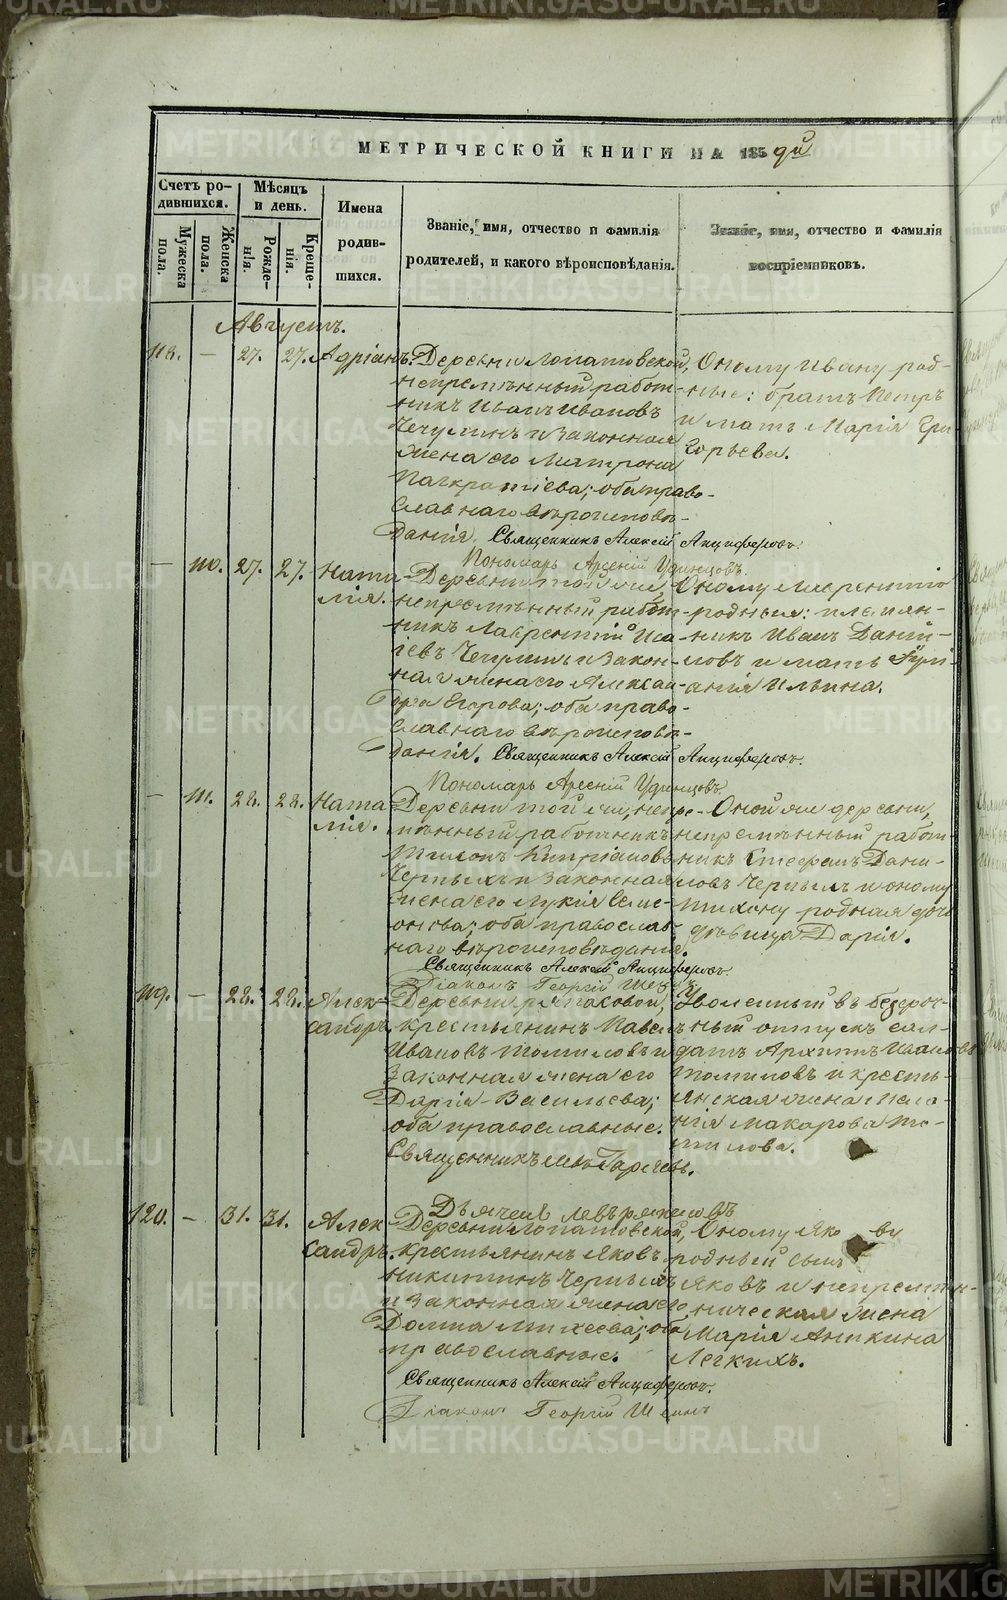 МЕТРИЧЕСКОЙ КНИГИ НА 185
Счетъ ро-
дившихся.
Мѣсяцъ
и день.
Имена
родив-
шихся.
Званіе, имя, отчество и фамилія
родителей, и какого вѣроисповѣданія.
Званіе, имя, отчество и фамилія
воспріемниковъ.
Мужеска
пола.
Женска
пола.
Рожде-
нія.
Креще-
нія.
Августъ.
118. — 27. 27. Адріанъ.
Деревни Лопатовской,
непремѣнный работ-
никъ Иванъ Ивановъ
Чечулинъ и законная
жена его Матрона
Панкратіева; оба право-
славнаго вѣроисповѣ-
данія. Священникъ Алексій Анциферовъ.
Пономарь Арсеній Удинцовъ.
Оному Ивану род-
ные: братъ Петръ
и мать Марія Гри-
горьева.
— 110. 27. 27. Ната-
лія.
Деревни той же,
непремѣнный работ-
никъ Лаврентій Иса-
іевъ Чечулинъ и закон-
ная жена его Алексан-
дра Егорова; оба право-
славнаго вѣроисповѣ-
данія. Священникъ Алексій Анциферовъ.
Пономарь Арсеній Удинцовъ.
Оному Лаврентію
родныя: племян-
никъ Иванъ Дані-
ловъ и мать
Ильина.
— 111. 28. 28. Ната-
лія.
Деревни той же, непре-
мѣнный работникъ
Тихонъ Кипріановъ
Черныхъ и законная
жена его Лукія Семе-
онова; оба православ-
наго вѣроисповѣданія.
Священникъ Алексій Анциферовъ.
Діаконъ Георгій
Оной же деревни,
непремѣнный работ-
никъ Стефанъ Дани-
ловъ Черныхъ и оному
Тихону родная дочь
дѣвица Дарія.
119. — 28. 28. Алек-
сандръ.
Деревни
крестьянинъ Павелъ
Ивановъ Томиловъ и
законная жена его
Дарія Васильева;
оба православные.
Священникъ
Уволенный въ безсроч-
ный отпускъ сол-
датъ Архипъ Ивановъ
Томиловъ и кресть-
янская жена Мела-
нія Макарова То-
милова.
120. — 31. 31. Алек-
сандръ.
Дьячекъ
Деревни Лопатовской,
крестьянинъ Яковъ
Никитинъ Черныхъ
и законная жена его
Домна Михеева; оба
православные.
Священникъ Алексій Анциферовъ.
Діаконъ Георгій
Оному Якову
родный сынъ
Яковъ и непремѣн-
ническая жена
Марія Аникина
Легкихъ.